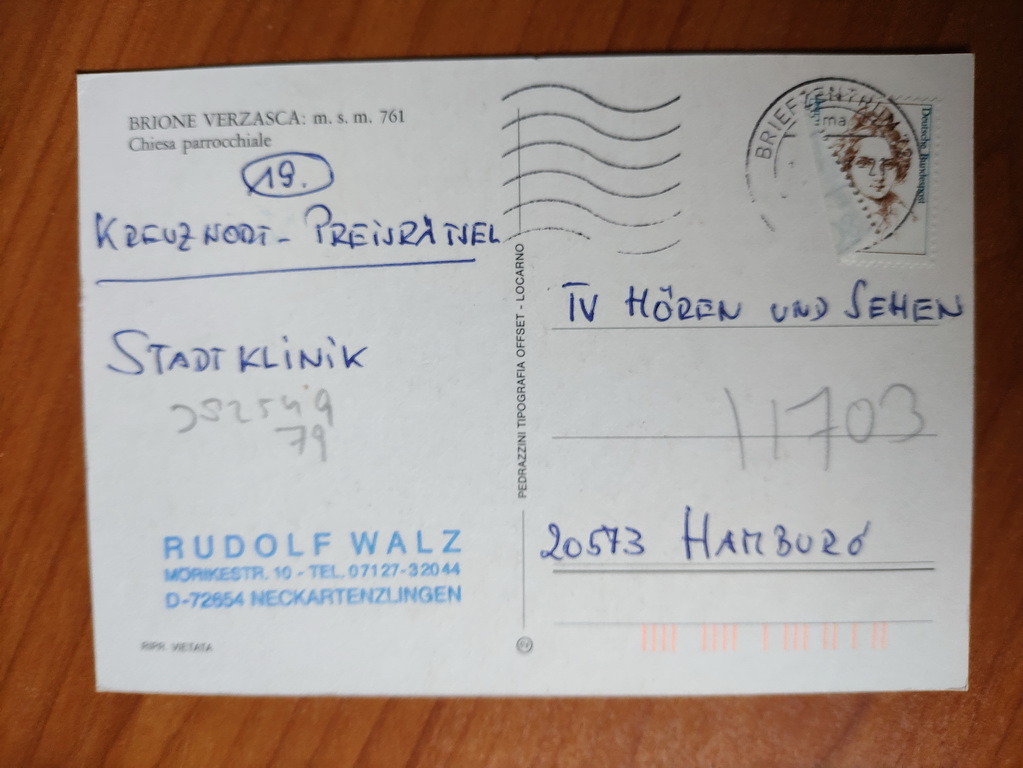 BRIONE VERZASCA: m. s. m. 761
Chiesa parrocchiale
19.
KREUZWORT-PREISRÄTSEL
STADTKLINIK
79
RUDOLF WALZ
MÖRIKESTR. 10 - TEL. 07127-32044
D-72654 NECKARTENZLINGEN
RIPR. VIETATA
PEDRAZZINI TIPOGRAFIA OFFSET - LOCARNO
BRIEFZENTRUM
ma
Deutsche Bundespost
TV HÖREN UND SEHEN
11703
20573 HAMBURG